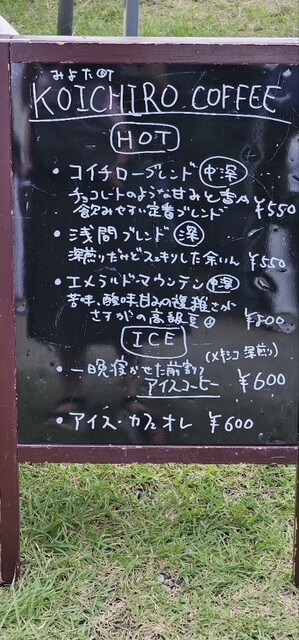 みよた町
KOICHIRO COFFEE
HOT
・コイチローブレンド 中深
チョコレートのような甘みと香り
飲みやすい定番ブレンド ¥550
・浅間ブレンド 深
深煎りだけどスッキリした余いん ¥550
・エメラルド・マウンテン 中深
苦味、酸味甘みの複雑さが
さすがの高級豆 ¥800
ICE
(メキシコ 深煎り)
・一晩寝かせた前割り
アイスコーヒー ¥600
・アイス・カフェオレ ¥600